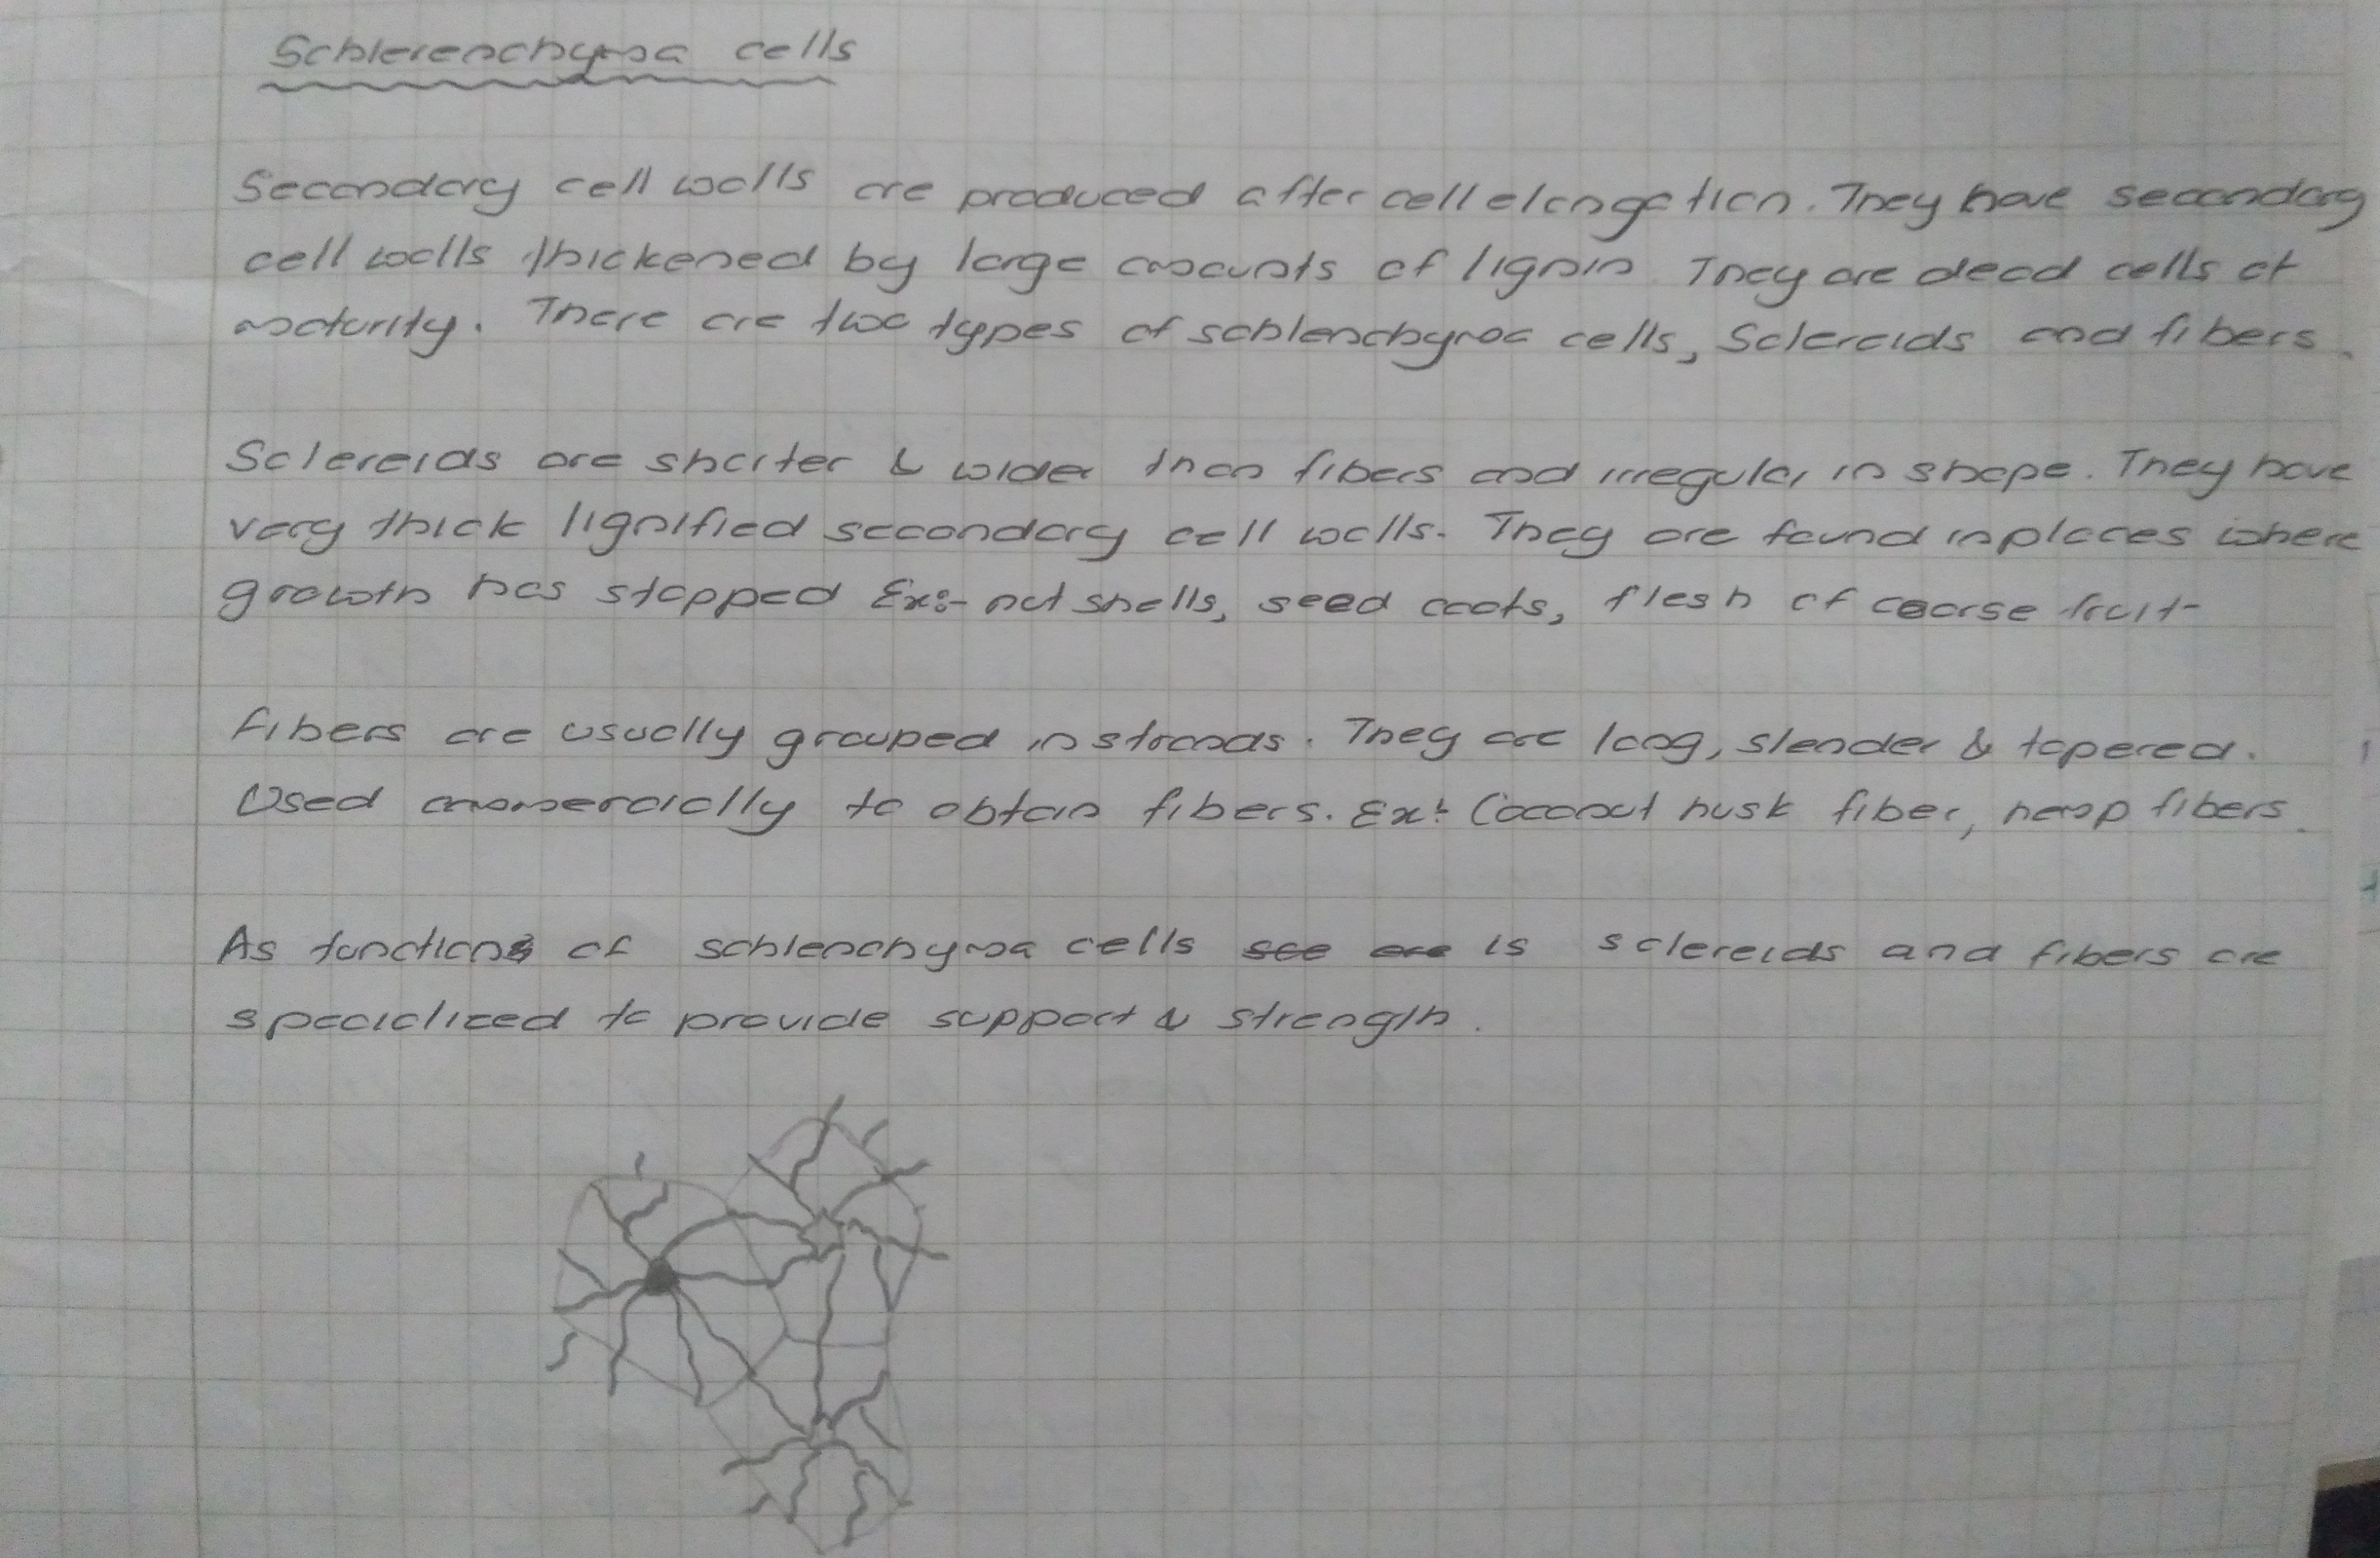 Schlerenchyma cells
Secondary cell walls are produced after cell elongation. They have secondary
cell walls thickened by large amounts of lignin. They are dead cells at
maturity. There are two types of schlenchyma cells, Sclereids and fibers.
Sclereids are shorter & wider than fibers and irregular in shape. They have
very thick lignified secondary cell walls. They are found in places where
growth has stopped Ex:- nut shells, seed coats, flesh of coarse fruit
Fibers are usually grouped in strands. They are long, slender & tapered.
Used commercially to obtain fibers. Ex: Coconut husk fiber, hemp fibers.
As functions of schlenchyma cells see are is sclereids and fibers are
specialized to provide support & strength.